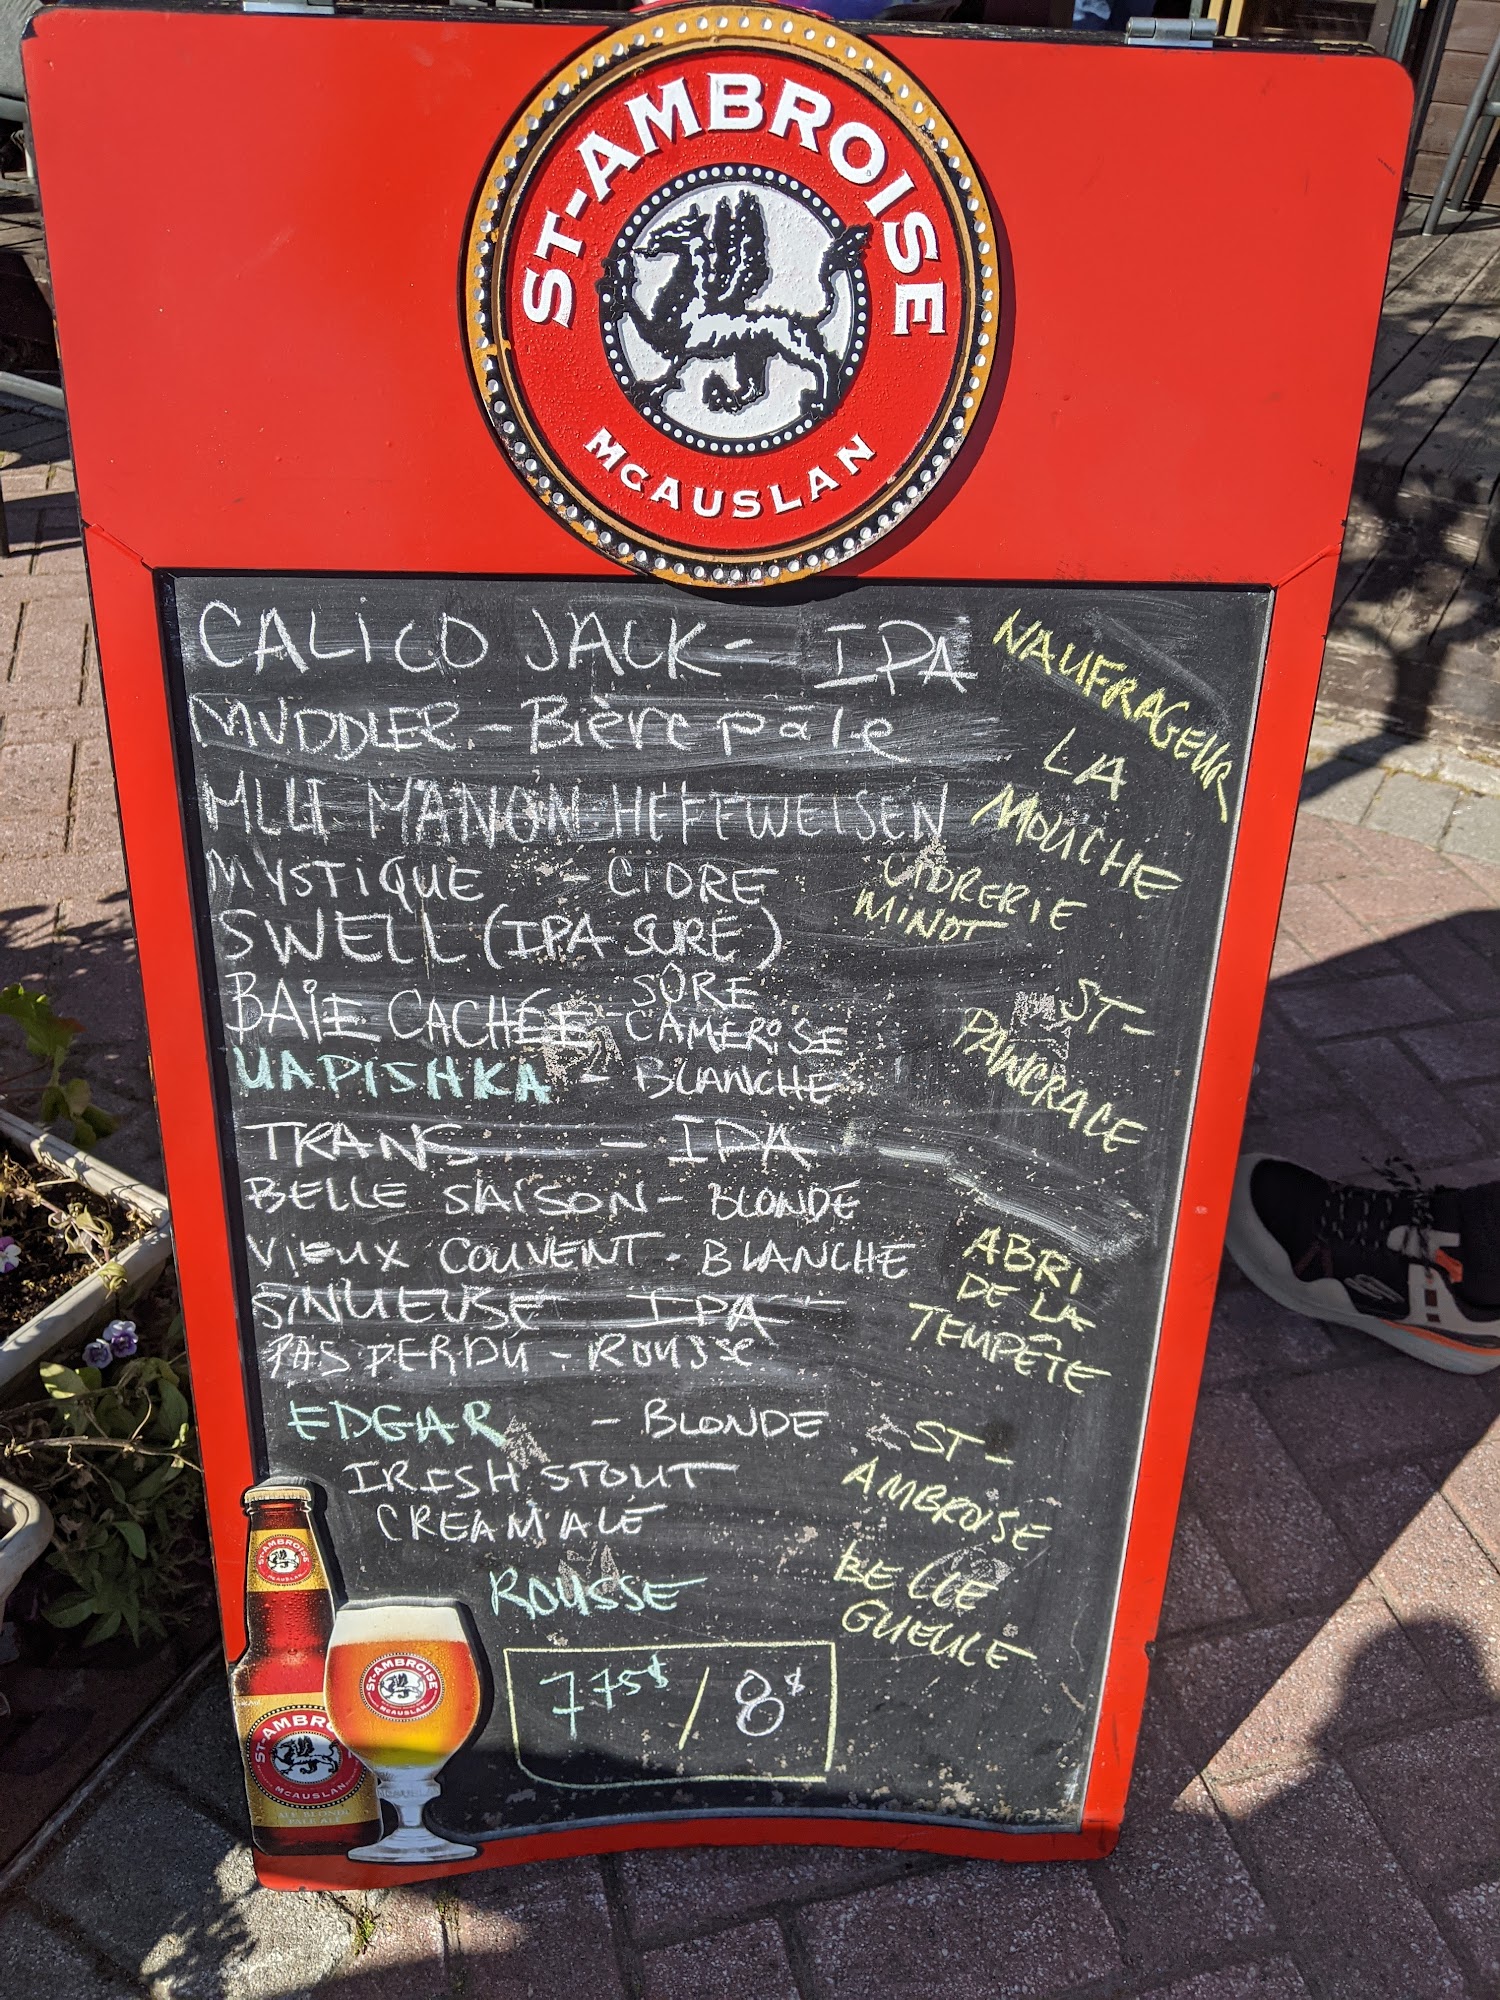 ST-AMBROISE
McAUSLAN
CALICO JACK - IPA
MUDDLER - Bière pâle
NAUFRAGEUR
MLLE MANON HEFFWEISEN
LA
MOUCHE
MYSTIQUE - CIDRE
CIDRERIE
MINOT
SWELL (IPA SURE)
BAIE CACHÉE - SÛRE
CAMERISE
UAPISHKA - BLANCHE
ST-
PANCRACE
TRANS - IPA
BELLE SAISON - BLONDE
VIEUX COUVENT - BLANCHE
SINUEUSE IPA
PAS PERDU - ROUSSE
ABRI
DE LA
TEMPÊTE
EDGAR - BLONDE
ST-
AMBROISE
IRISH STOUT
CREAM ALE
ROUSSE
BELLE
GUEULE
7 75$ / 8$
ST-AMBROISE
McAUSLAN
ST-AMBROISE
McAUSLAN
ST-AMBR
McAUSLAN
ALE BLONDE
PALE ALE